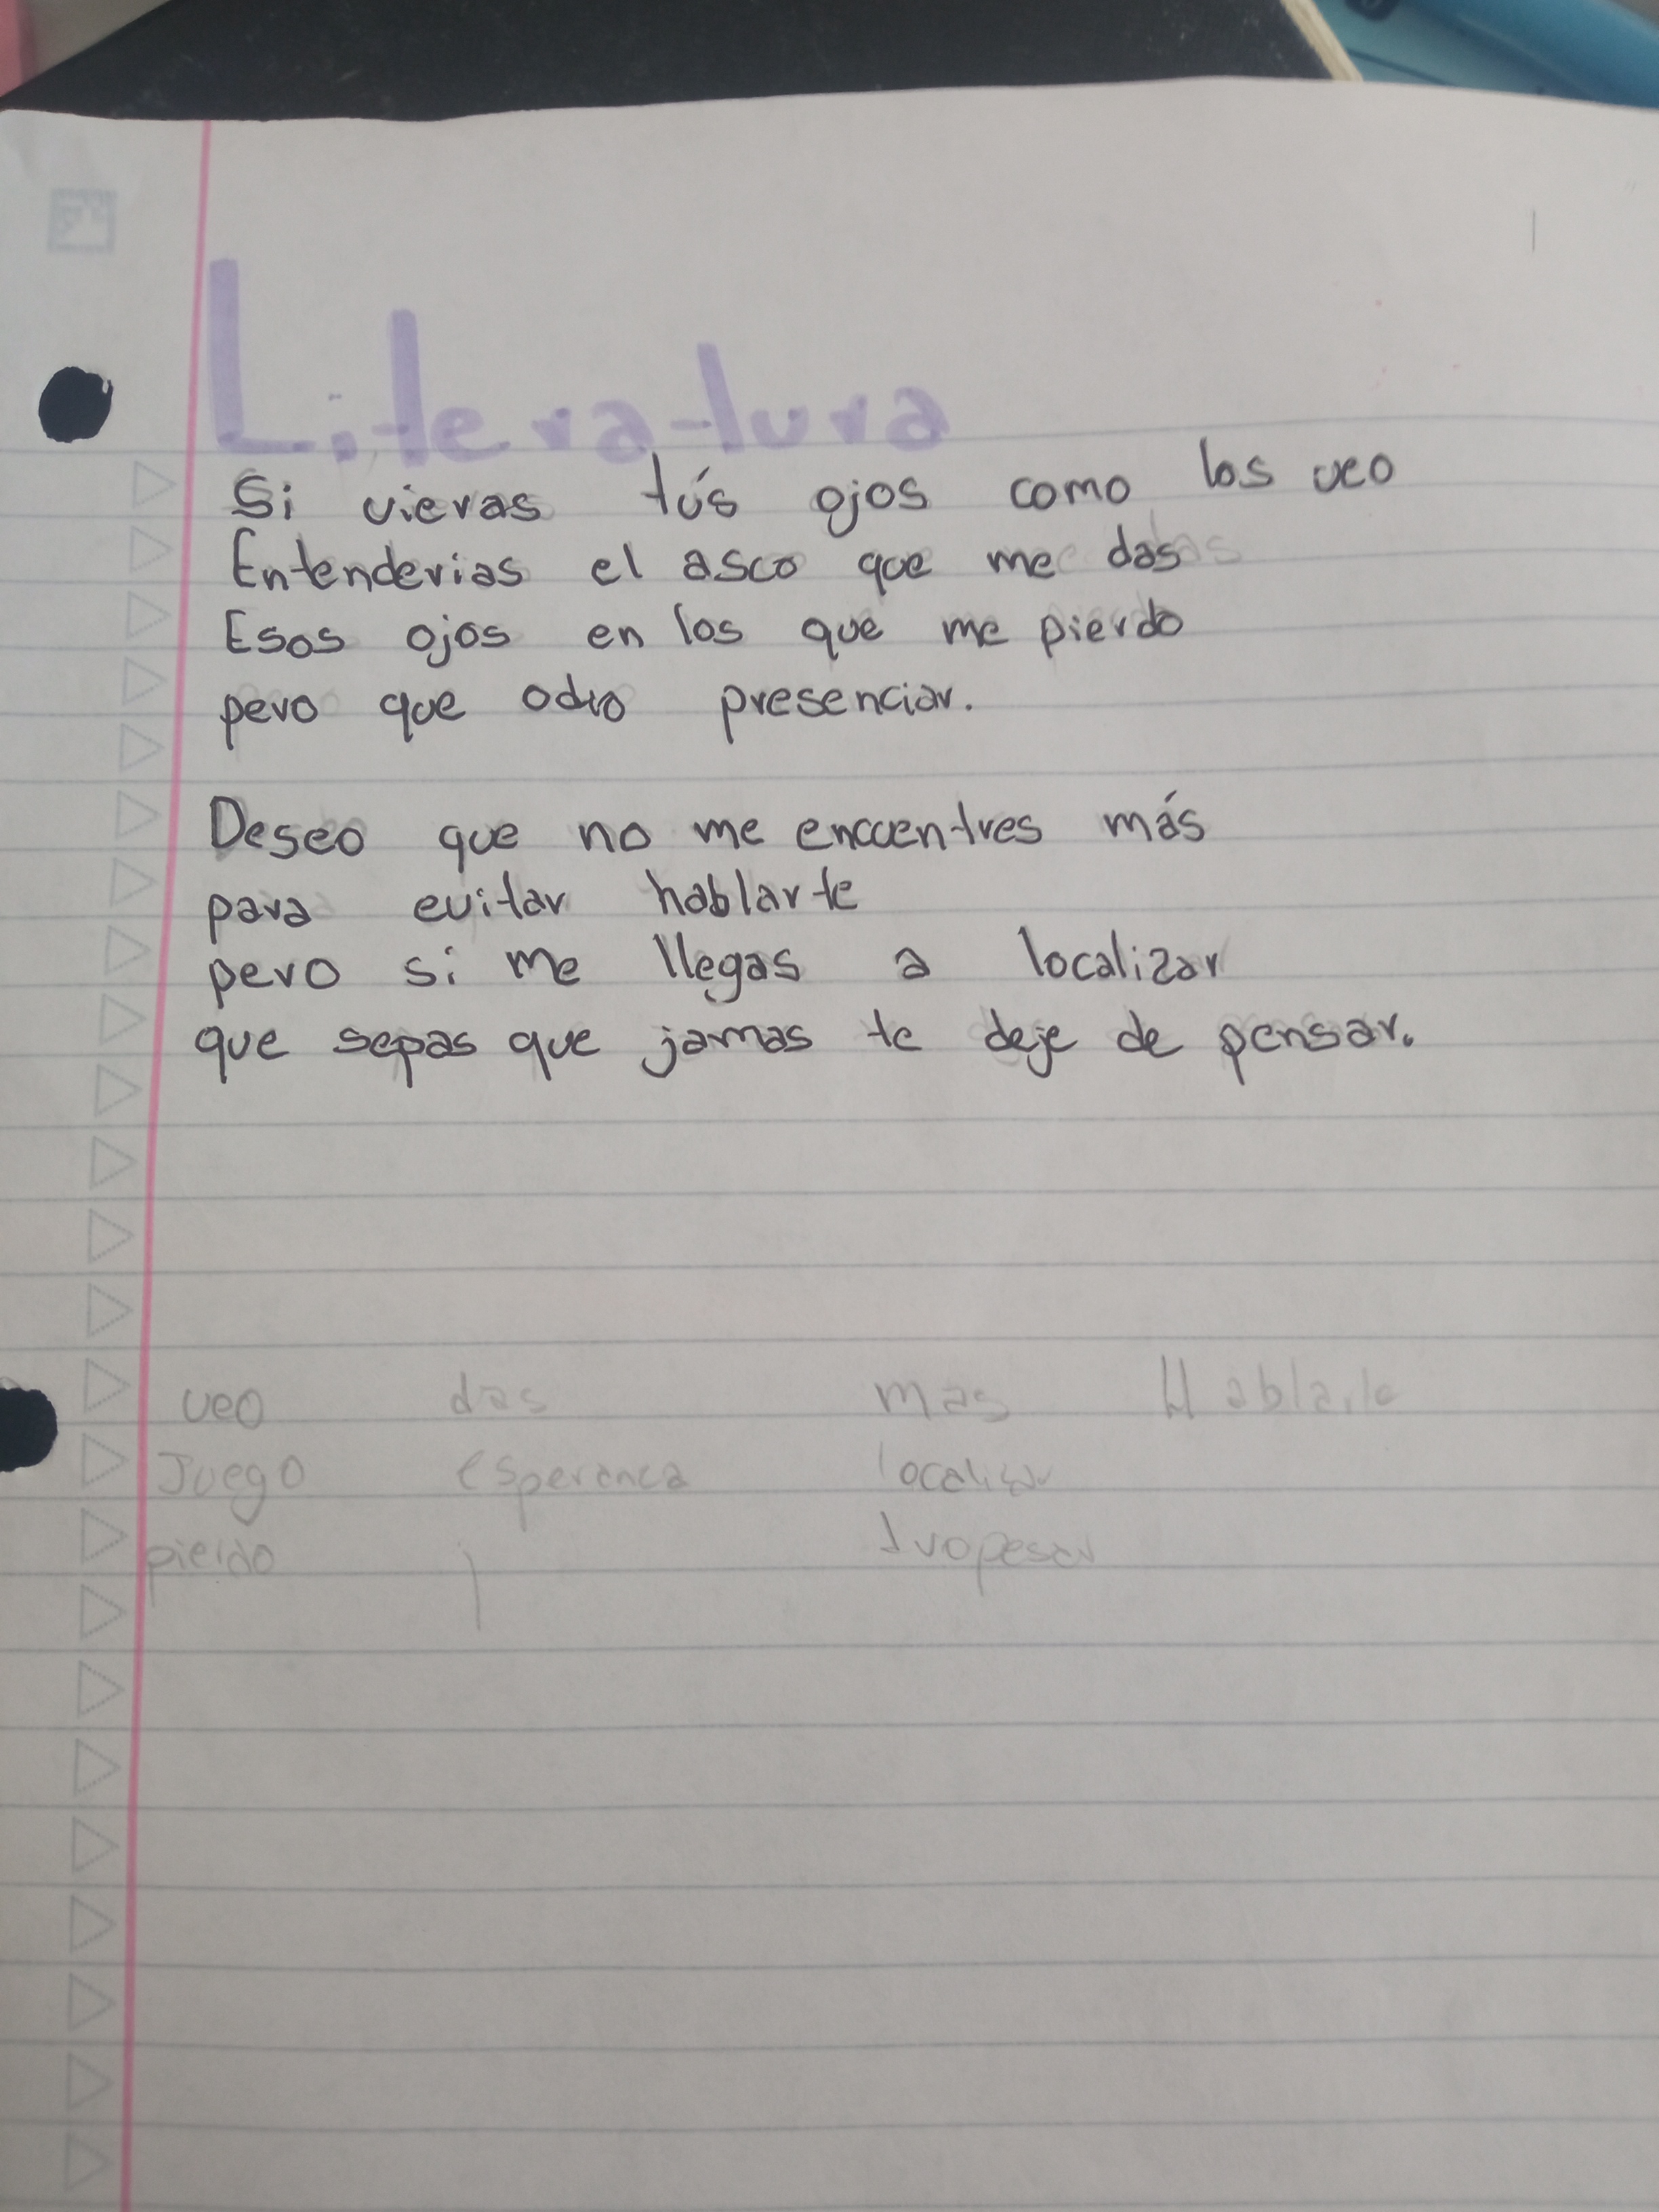 Literatura
Si vieras tús ojos como los veo
Entenderias el asco que me das
Esos ojos en los que me pierdo
pero que odio presenciar.
Deseo que no me encuentres más
para evitar hablarte
pero si me llegas a localizar
que sepas que jamas te deje de pensar.
veo das mas Hablarle
Juego esperanca localizar
pierdo tropesar